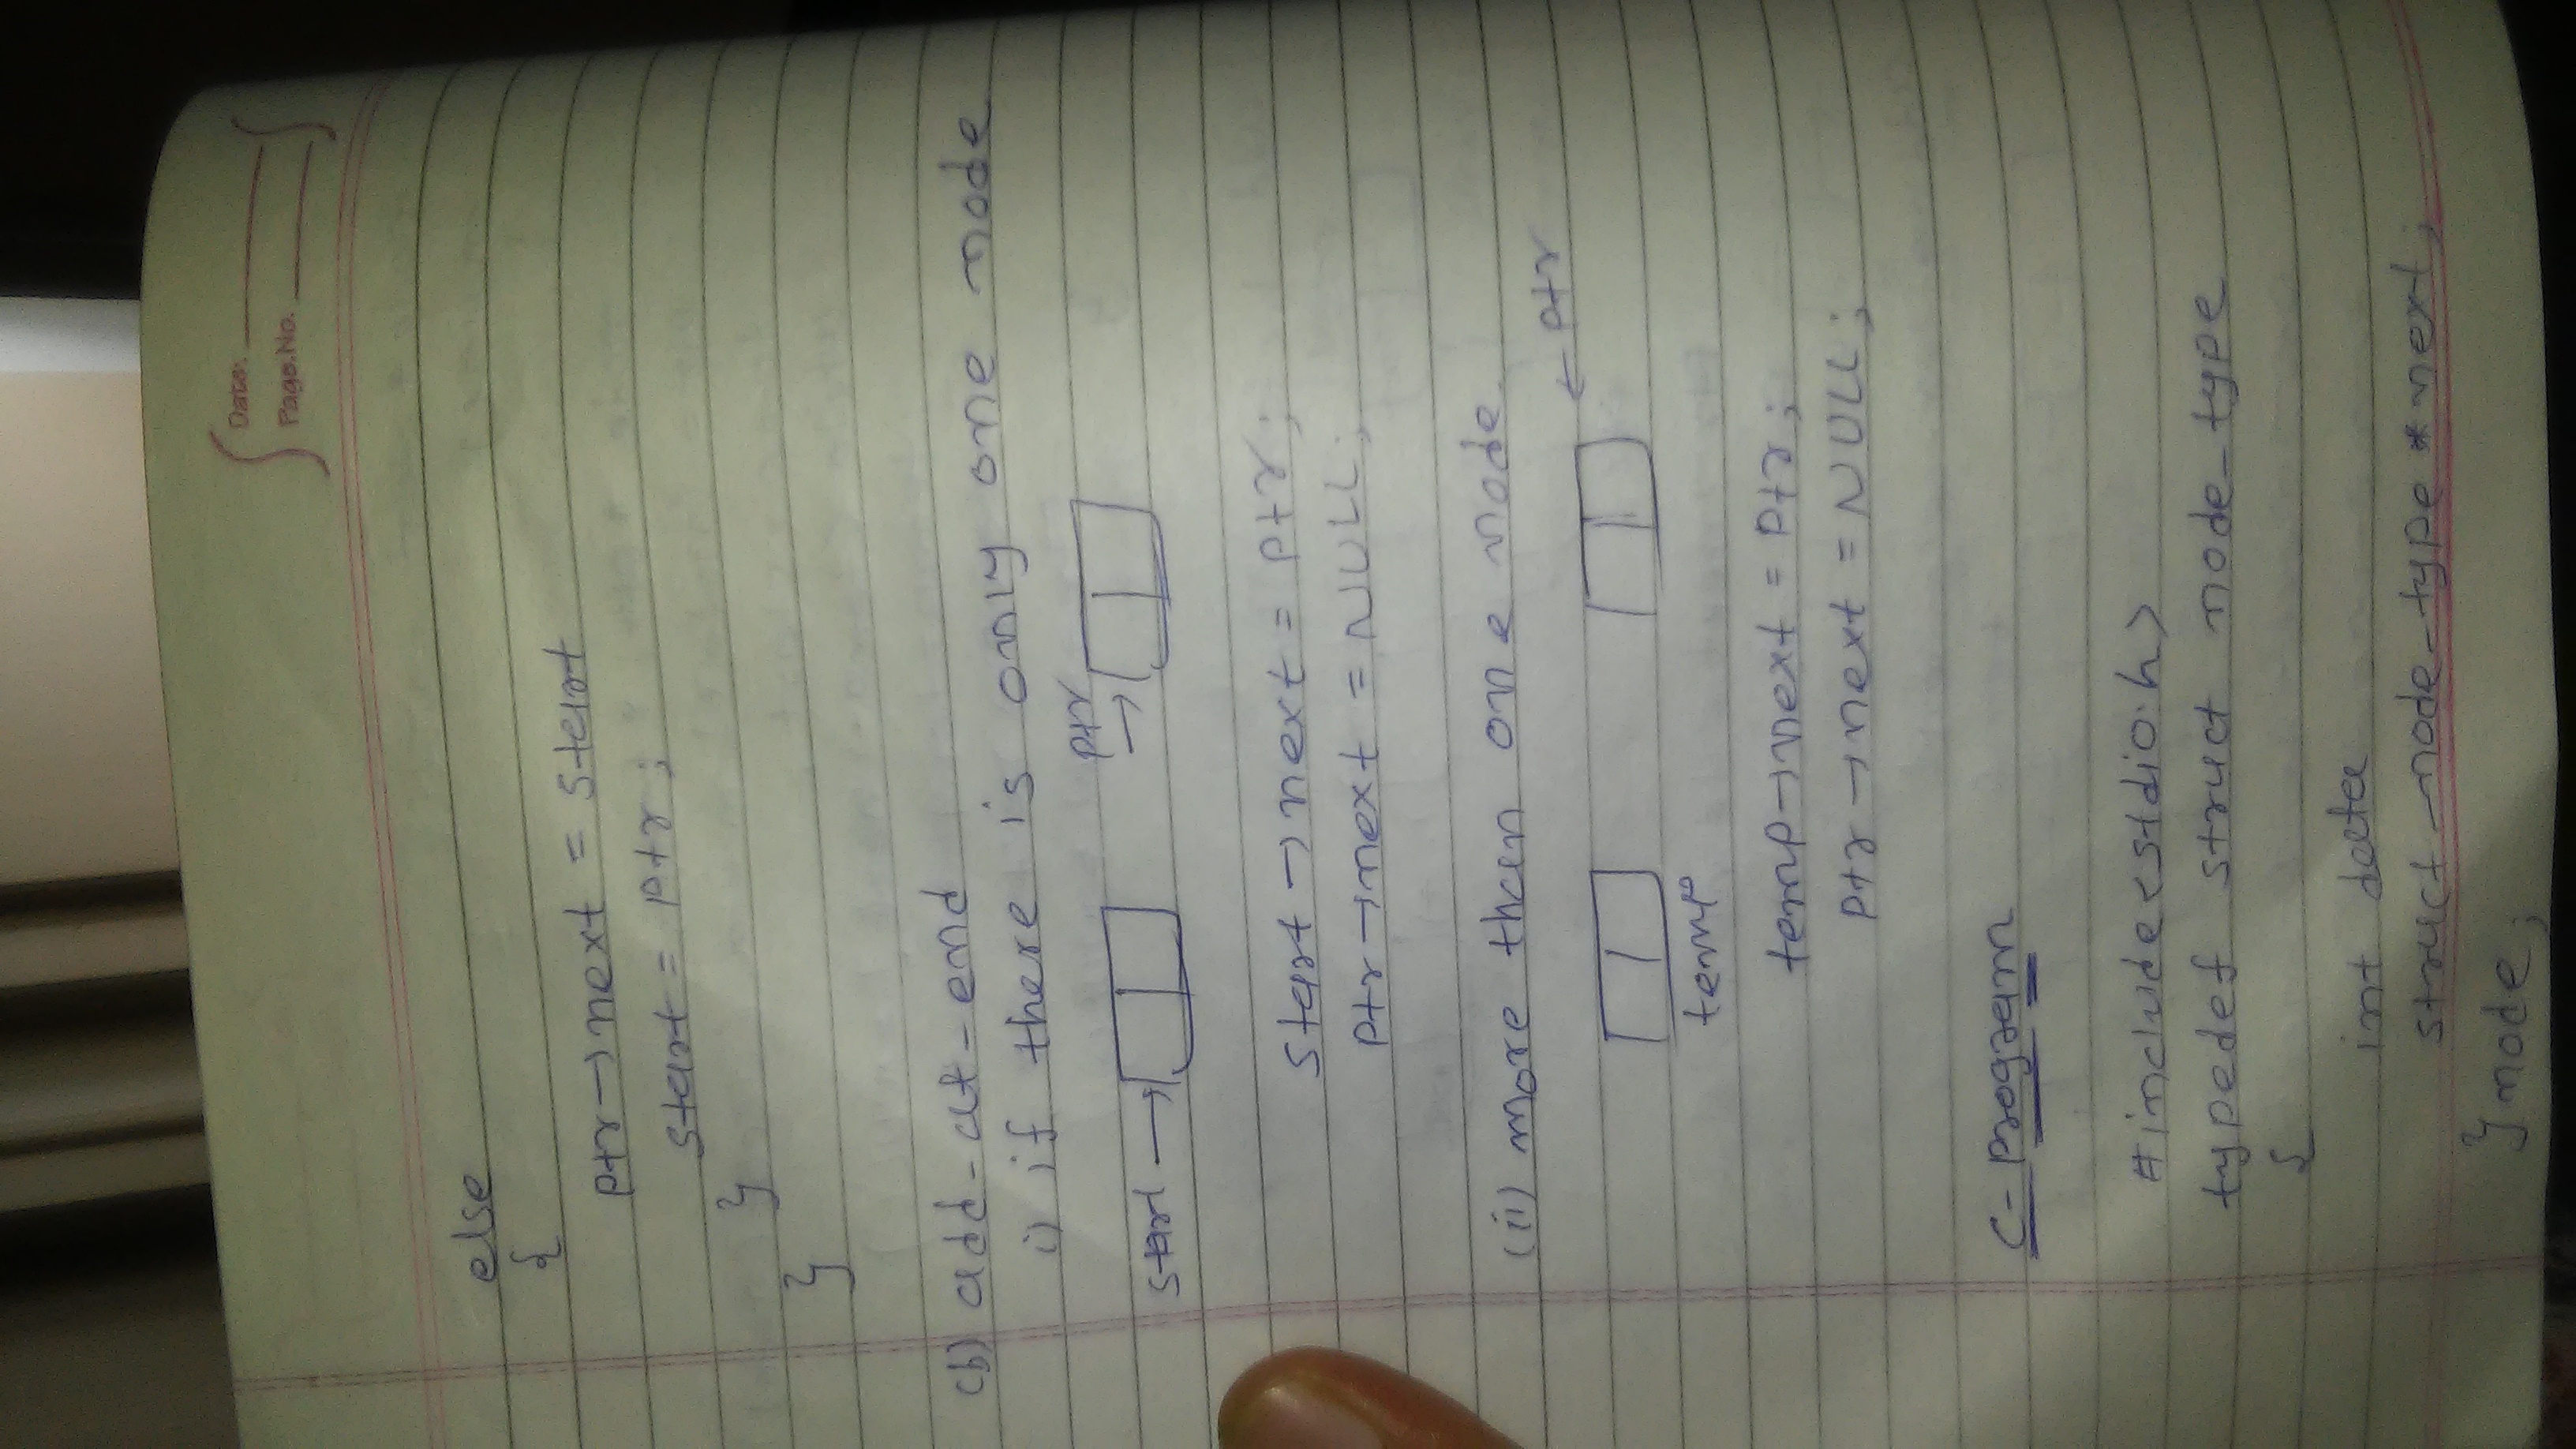 Date:
Page.No.
else
{
ptr→next = start
start = ptr;
}
}
(b) add-at-end
i) if there is only one node
ptr
start →
→
start → next = ptr;
ptr → next = NULL;
(ii) more than one node
← ptr
temp
temp→next = ptr;
ptr → next = NULL;
C- program
#include<stdio.h>
typedef struct node_type
{
int data
struct node_type * next;
} node;